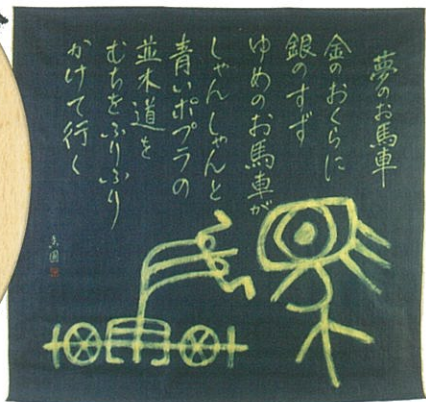 夢のお馬車
金のおくらに
銀のすず
ゆめのお馬車が
しゃんしゃんと
青いポプラの
並木道を
むちをふりふり
かけて行く